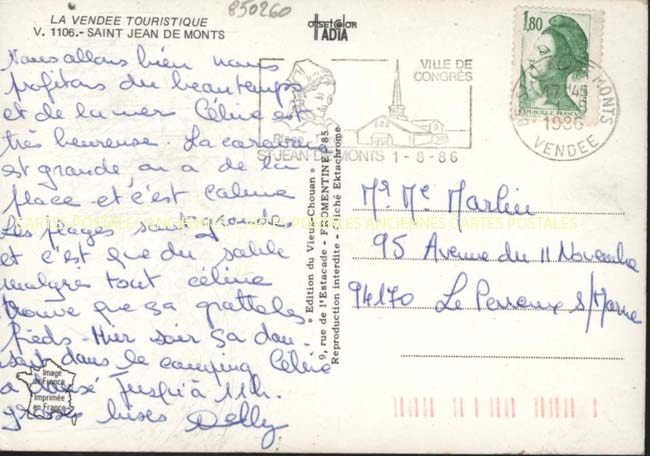 LA VENDEE TOURISTIQUE
V. 1106.- SAINT JEAN DE MONTS
850260
OFFSET COLOR
IADIA
Nous allons bien nous
profitons du beau temps
et de la mer Céline est
très heureuse. La caravane
est grande on a de la
place et c'est calme
les plages sont grandes
et c'est que du sable
malgrés tout céline
trouve que sa grattes les
pieds. Hier soir sa dan-
sait dans le camping Céline
a dansé jusqu'à 11h.
grosses bises Nelly
VILLE DE
CONGRÈS
ST JEAN DE MONTS 1-8-86
1,80
REPUBLIQUE FRANÇAISE
MONTS
17H45
1986
VENDEE
« Edition du Vieux-Chouan »
9, rue de l'Estacade - FROMENTINE 85.
Reproduction interdite - Cliché Ektachrome
Mr Me Marlin
95 Avenue du 11 Novembre
94170 Le Perreux s/Marne
CARTES POSTALES ANCIENNES CARTES POSTALES
Image
de France
Imprimée
en France